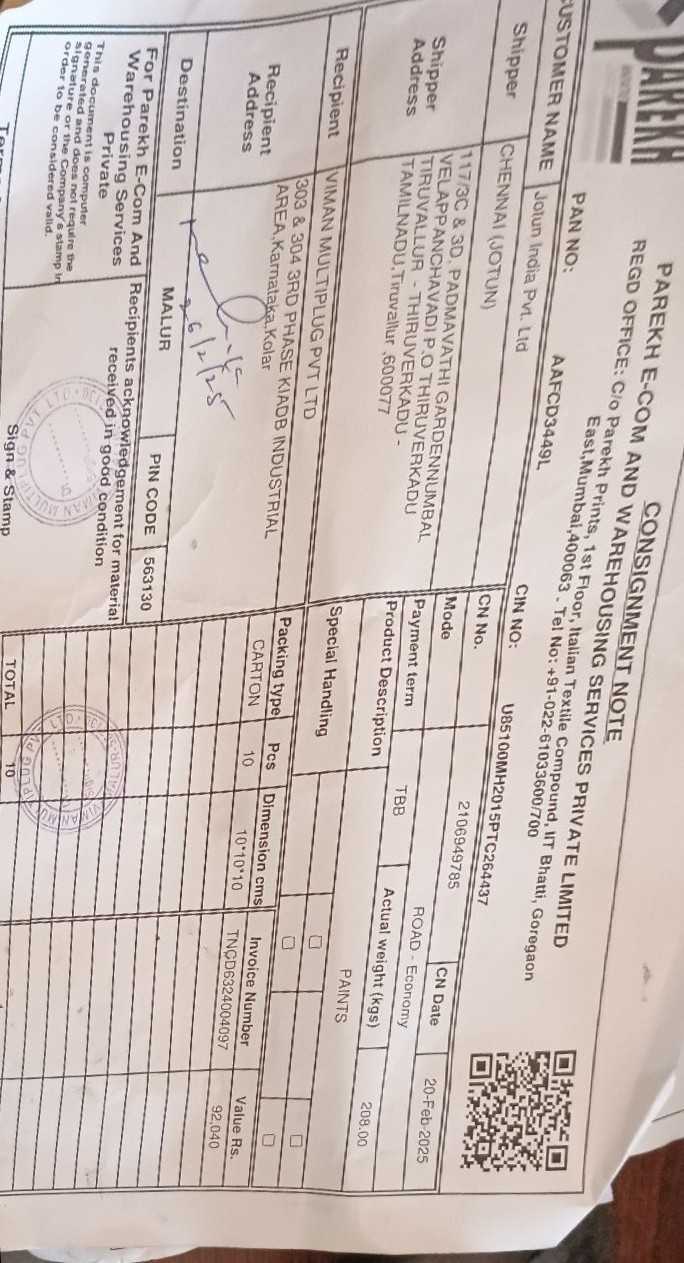 PAREKH
CONSIGNMENT NOTE
PAREKH E-COM AND WAREHOUSING SERVICES PRIVATE LIMITED
REGD OFFICE: C/o Parekh Prints, 1st Floor, Italian Textile Compound, IIT Bhatti, Goregaon
East,Mumbai,400063 - Tel No: +91-022-61033600/700
PAN NO: AAFCD3449L CIN NO: U85100MH2015PTC264437
CUSTOMER NAME Jotun India Pvt. Ltd
Shipper CHENNAI (JOTUN)
Shipper Address
117/3C & 3D. PADMAVATHI GARDENNUMBAL
VELAPPANCHAVADI P.O THIRUVERKADU
TIRUVALLUR - THIRUVERKADU -
TAMILNADU,Tiruvallur ,600077
CN No. 2106949785 CN Date 20-Feb-2025
Mode ROAD - Economy
Payment term TBB Actual weight (kgs) 208.00
Product Description PAINTS
Special Handling
Recipient VIMAN MULTIPLUG PVT LTD
Recipient Address
303 & 304 3RD PHASE KIADB INDUSTRIAL
AREA,Karnataka,Kolar
26/2/25
Destination MALUR PIN CODE 563130
Packing type Pcs Dimension cms Invoice Number Value Rs.
CARTON 10 10*10*10 TNCD6324004097 92,040
For Parekh E-Com And
Warehousing Services
Private
This document is computer
generated and does not require the
signature or the Company's stamp in
order to be considered valid.
Recipients acknowledgement for material
received in good condition
Sign & Stamp
TOTAL 10